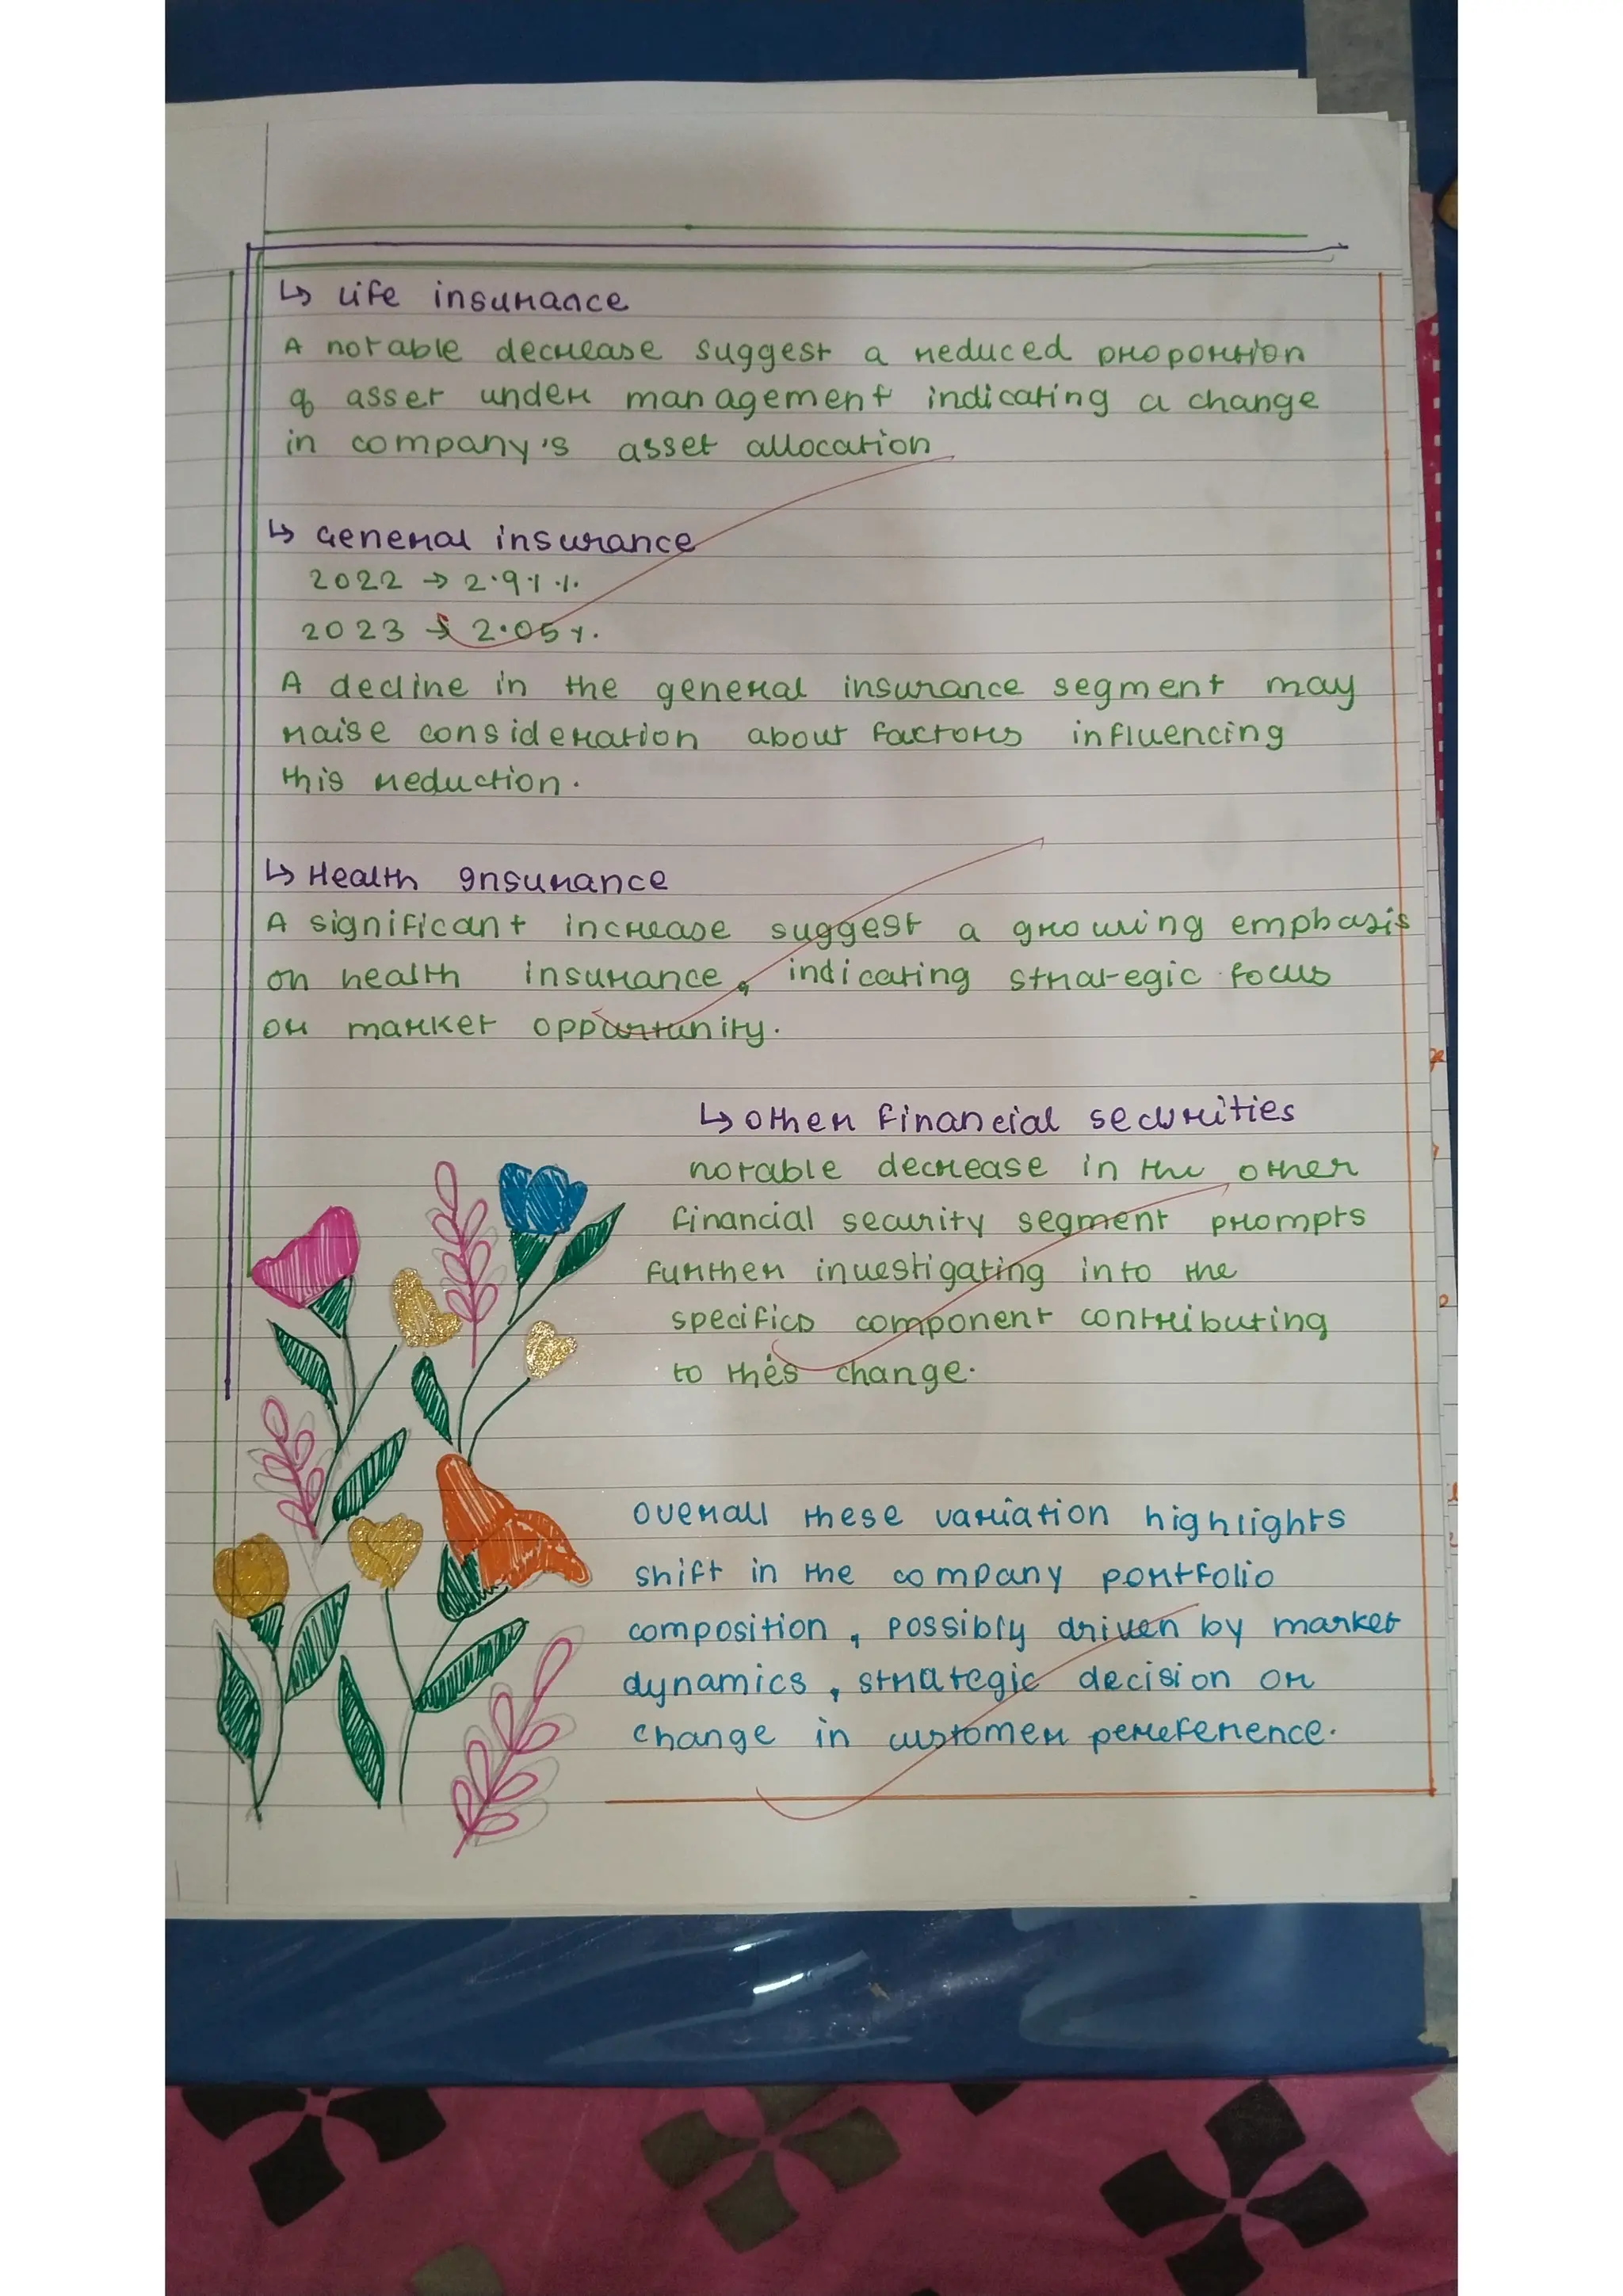 ↳ Life insurance
A notable decrease suggest a reduced proportion
of asset under management indicating a change
in company's asset allocation
↳ General insurance
2022 → 2.91 %.
2023 → 2.05 %.
A decline in the general insurance segment may
raise consideration about factors influencing
this reduction.
↳ Health Insurance
A significant increase suggest a growing emphasis
on health insurance, indicating strategic focus
or market oppurtunity.
↳ Other financial securities
notable decrease in the other
financial security segment prompts
further investigating into the
specifics component contributing
to this change.
Overall these variation highlights
shift in the company portfolio
composition, possibly driven by market
dynamics, strategic decision or
change in customer pereference.